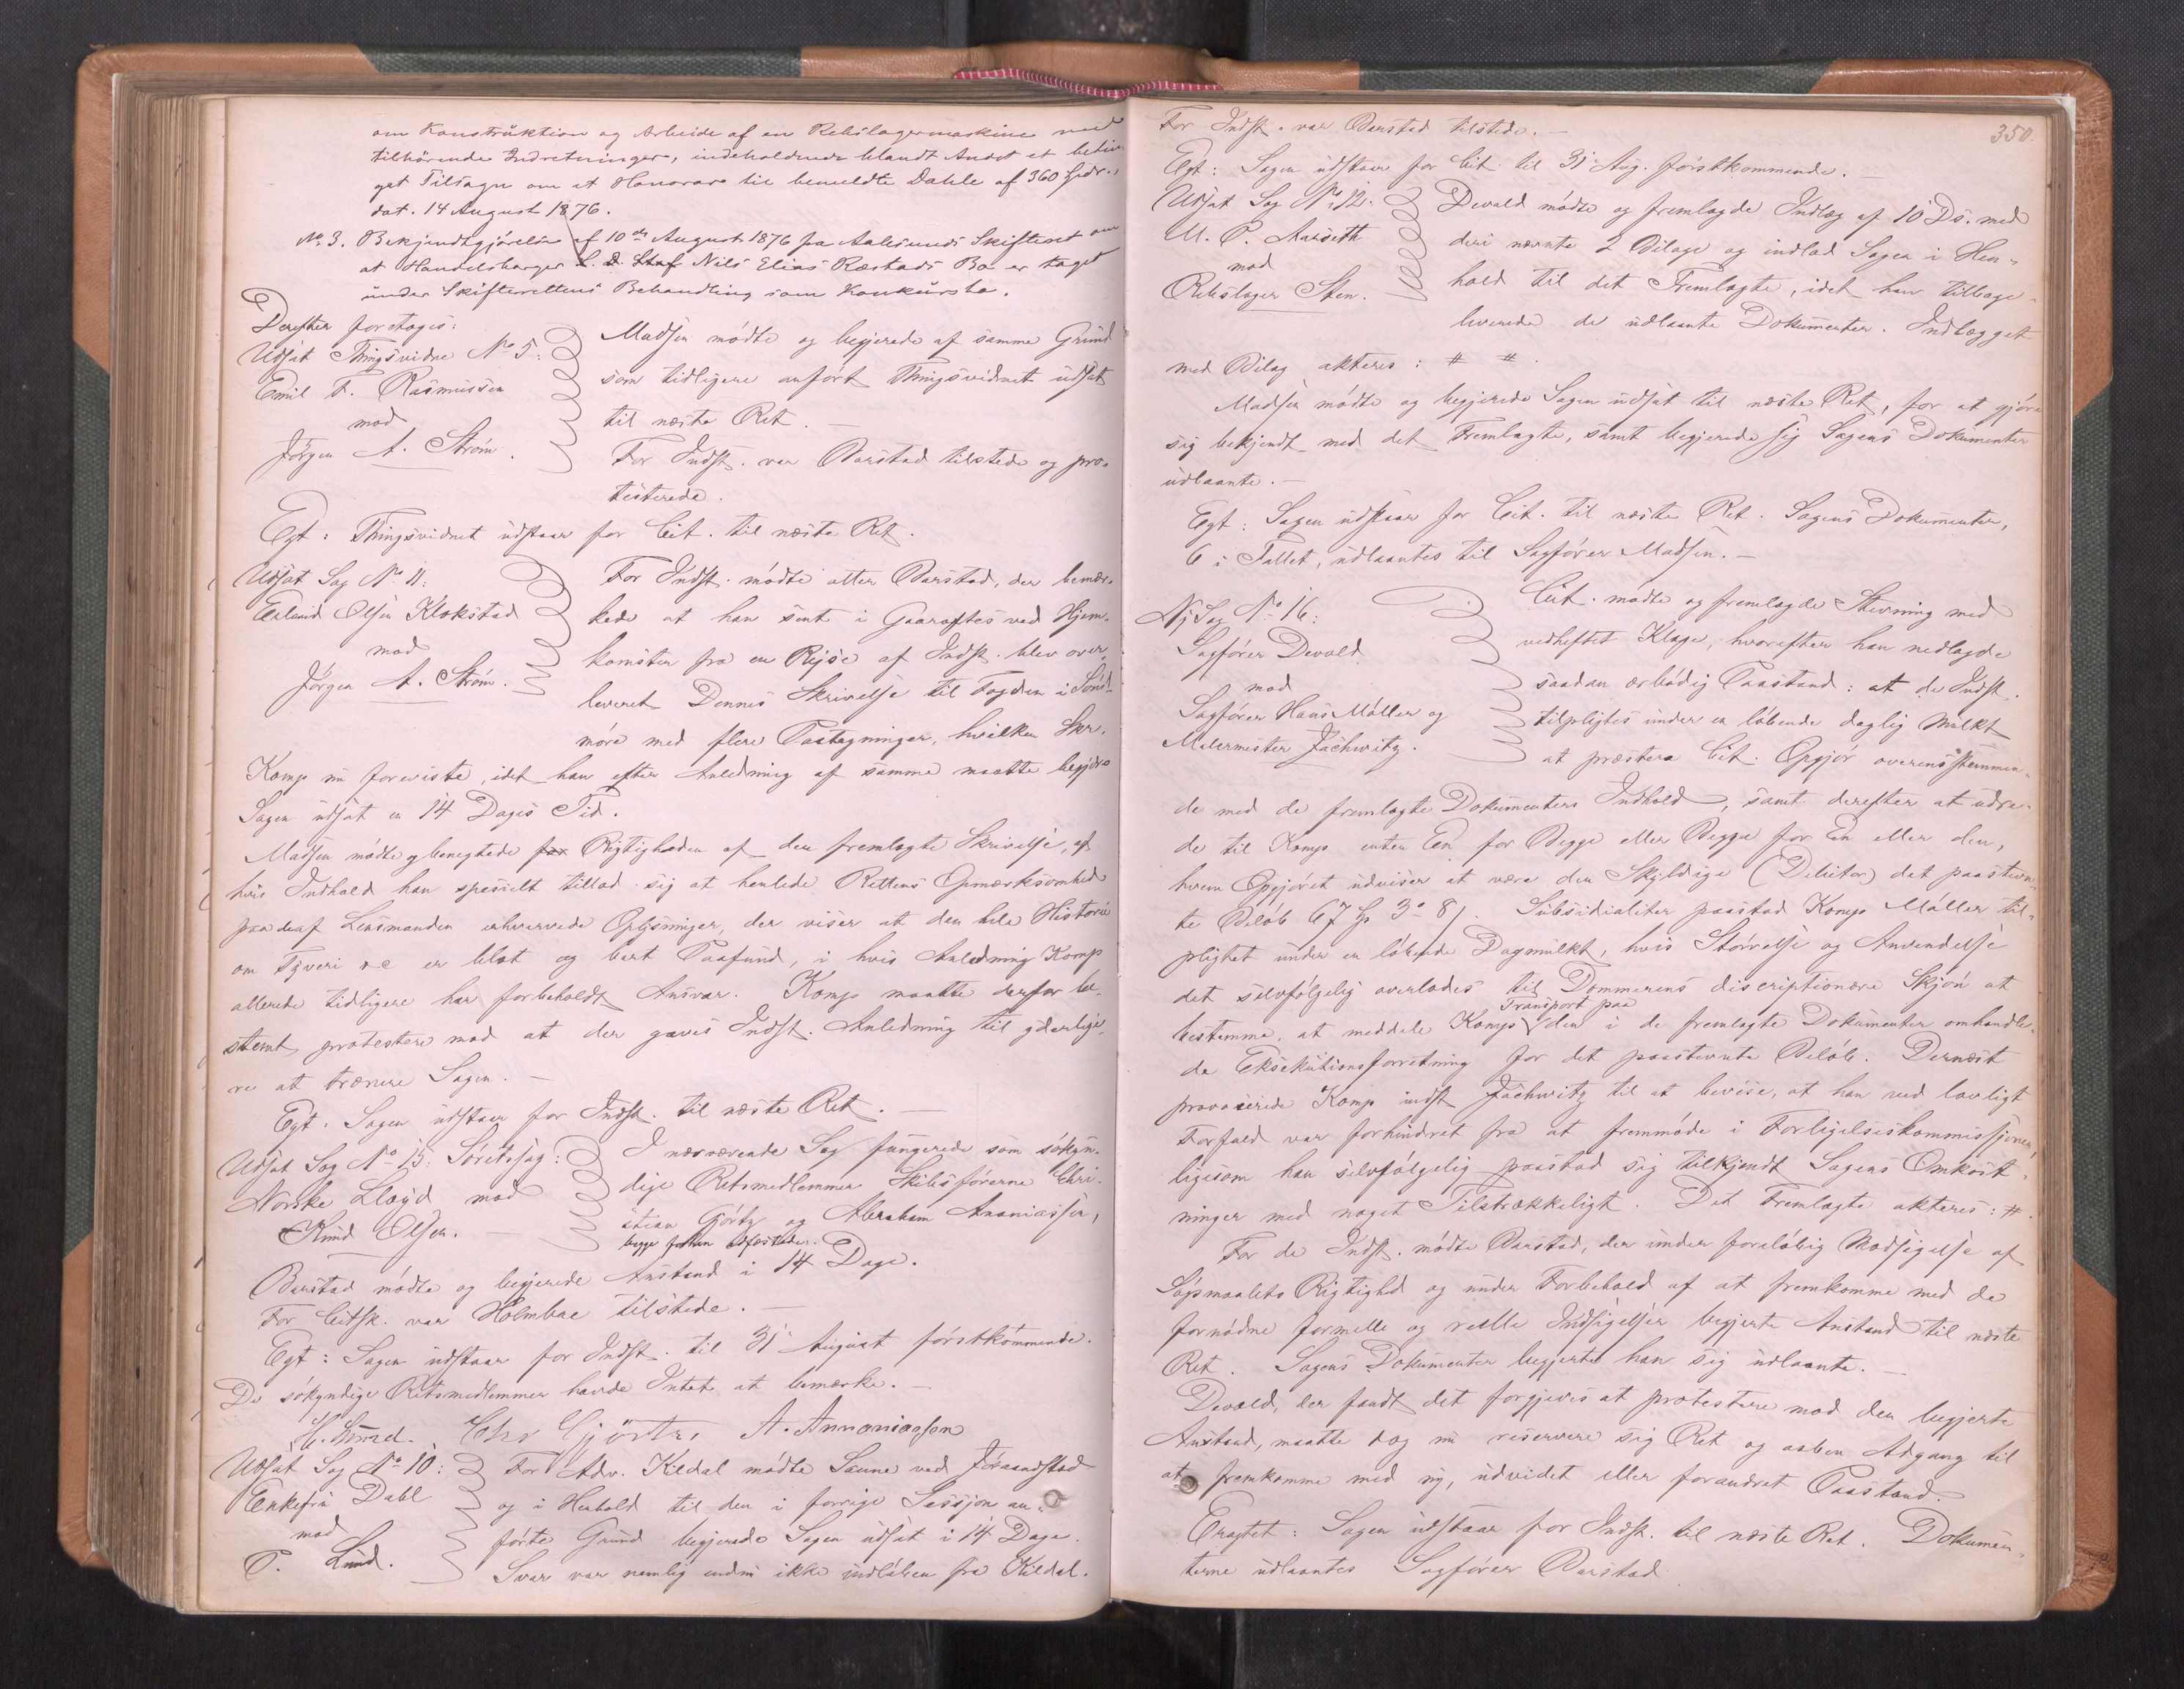 om Konstruktion og Arbeide af en Rebslagermaskine med
tilhörende Indretninger, indeholdende blandt Andet et betin-
get Tilsagn om et Honorar til bemeldte Dahle af 360 Spdr.,
dat. 14 August 1876.
No. 3. Bekjendtgjörelse af 10de August 1876 fra Aalesunds Skifteret om
at Handelsborger Nils Elias Ræstads Bo er taget
under Skifterettens Behandling som Konkursbo.
Derefter foretoges:
Udsat Thingsvidne No 5:
Emil F. Rasmussen
mod
Jörgen A. Ström.
Madsen mödte og begjerede af samme Grund
som tidligere anfört Thingsvidnet udsat
til næste Ret.
For Indst. var Barstad tilstede og pro-
testerede.
Egt: Thingsvidnet udstaar for Cit. til næste Ret.
Udsat Sag No 11:
Erland Olsen Klokstad
mod
Jörgen A. Ström.
For Indst. mödte atter Barstad, der bemær-
kede at han sent i Gaaraftes ved Hjem-
komsten fra en Rejse af Indst. blev over-
leveret Dennes Skrivelse til Fogden i Sönd-
möre med flere Paategninger, hvilken Skr.
Komp nu foreviste, idet han efter Anledning af samme maatte begjere
Sagen udsat en 14 Dages Tid.
Madsen mödte og benegtede Rigtigheden af den fremlagte Skrivelse, af
hvis Indhold han specielt tillod sig at henlede Rettens Opmærksomhed
paa de af Lensmanden erhvervede Oplysninger, der viser at den hele Historie
om Tyveri er blot og bart Paafund, i hvis Anledning Komp
allerede tidligere har forbeholdt Ansvar. Komp maatte derfor be-
stemt protestere mod at der gaves Indst. Anledning til yderlige-
re at trænere Sagen.
Egt. Sagen udstaar for Indst. til næste Ret.
Udsat Sag No 15. Söretssag:
Norske Lloyd mod
Knud Olsen.
I nærværende Sag fungerede som sökyn-
dige Retsmedlemmer Skibsförerne Chri-
stian Gjörtz og Abraham Ananiassen,
begge forhen edfæstede.
Barstad mödte og begjerede Anstand i 14 Dage.
For Citsk. var Holmboe tilstede.
Egt: Sagen udstaar for Indst. til 31 August förstkommende.
De sökyndige Retsmedlemmer havde Intet at bemærke.
Chr Gjörtz, A. Annaniassen
Udsat Sag No 10:
Enkefru Dahl
mod
P. Lund.
For Adv. Kildal mödte Saune ved
og i Henhold til den i forrige Session an-
förte Grund begjerede Sagen udsat i 14 Dage.
Svar var nemlig endnu ikke indlöben fra Kildal.
350.
For Indst. var Barstad tilstede.
Egt: Sagen udstaar for Cit. til 31 Aug. förstkommende.
Udsat Sag No 12.
M. P. Aarseth
mod
Rebslager Sten.
Devold mödte og fremlagde Indlæg af 10 Ds. med
deri nævnte 2 Bilage og indlod Sagen i Hen-
hold til det Fremlagte, idet han tilbage-
leverede de udlaante Dokumenter. Indlægget
med Bilag akteres: # #.
Madsen mödte og begjerede Sagen udsat til næste Ret, for at gjöre
sig bekjendt med det Fremlagte, samt begjerede sig Sagens Dokumenter
udlaante.
Egt: Sagen udstaar for Cit. til næste Ret. Sagens Dokumenter,
6 i Tallet, udlaantes til Sagförer Madsen.
Ny Sag No 16:
Sagförer Devold
mod
Sagförer Hans Möller og
Malermester Jachwitz.
Cit. mödte og fremlagde Stevning med
vedheftet Klage, hvorefter han nedlagde
saadan ærbödig Paastand: at de Indst.
tilpligtes under en löbende daglig Mulkt
at præstere Cit. Opgjör overensstemmen-
de med de fremlagte Dokumenters Indhold, samt derefter at udre-
de til Komp enten Een for Begge eller Begge for Een eller den,
hvem Opgjöret udviser at være den Skyldige (Debitor) det paastevn-
te Belöb 67 Sp 3 - 8 s. Subsidialiter paastod Komp Möller til-
pligtet under en löbende Dagmulkt, hvis Störrelse og Anvendelse
det selvfölgelig overlodes til Dommerens discriptionære Skjön at
bestemme, at meddele Komp Transport paa den i de fremlagte Dokumenter omhandle-
de Eksekutionsforretning for det paastevnte Belöb. Dernæst
provocerede Komp indst Jachwitz til at bevise, at han ved lovligt
Forfald var forhindret fra at fremmöde i Forligelseskommissjonen,
ligesom han selvfölgelig paastod sig tilkjendt Sagens Omkost-
ninger med noget Tilstrækkeligt. Det Fremlagte akteres: #.
For de Indst. mödte Barstad, der under forelöbig Modsigelse af
Sögsmaalets Rigtighed og under Forbehold af at fremkomme med de
fornödne formelle og reelle Indsigelser begjerte Anstand til næste
Ret. Sagens Dokumenter begjerte han sig udlaante.
Devold, der fandt det forgjeves at protestere mod den begjerte
Anstand, maatte dog nu reservere sig Ret og aaben Adgang til
at fremkomme med ny, udvidet eller forandret Paastand.
Eragtet: Sagen udstaar for Indst. til næste Ret. Dokumen-
terne udlaantes Sagförer Barstad